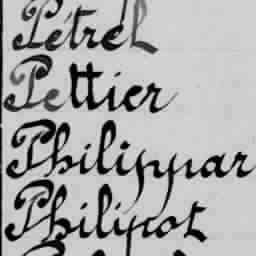 Pétrel
Pettier
Philippar
Philipot